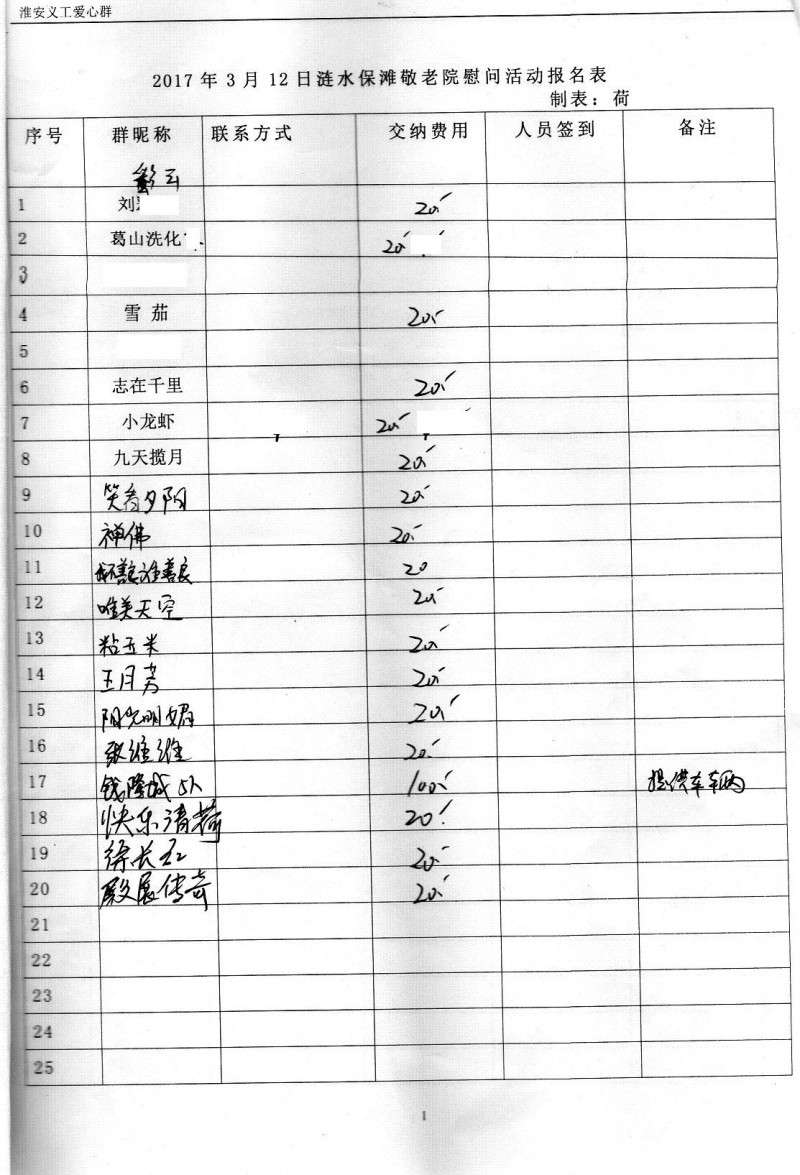 淮安义工爱心群
2017年3月12日涟水保滩敬老院慰问活动报名表
制表：荷
序号 群昵称 联系方式 交纳费用 人员签到 备注
1 刘 20
2 葛山洗化 20
3
4 雪茄 20
5
6 志在千里 20
7 小龙虾 20
8 九天揽月 20
9 笑看夕阳 20
10 禅佛 20
11 20
12 唯美天空 20
13 粘玉米 20
14 五月芳 20
15 阳光明媚 20
16 张维维 20
17 钱隆城 5人 100 提供车辆
18 快乐清荷 20
19 徐长红 20
20 殿展传奇 20
21
22
23
24
25
1